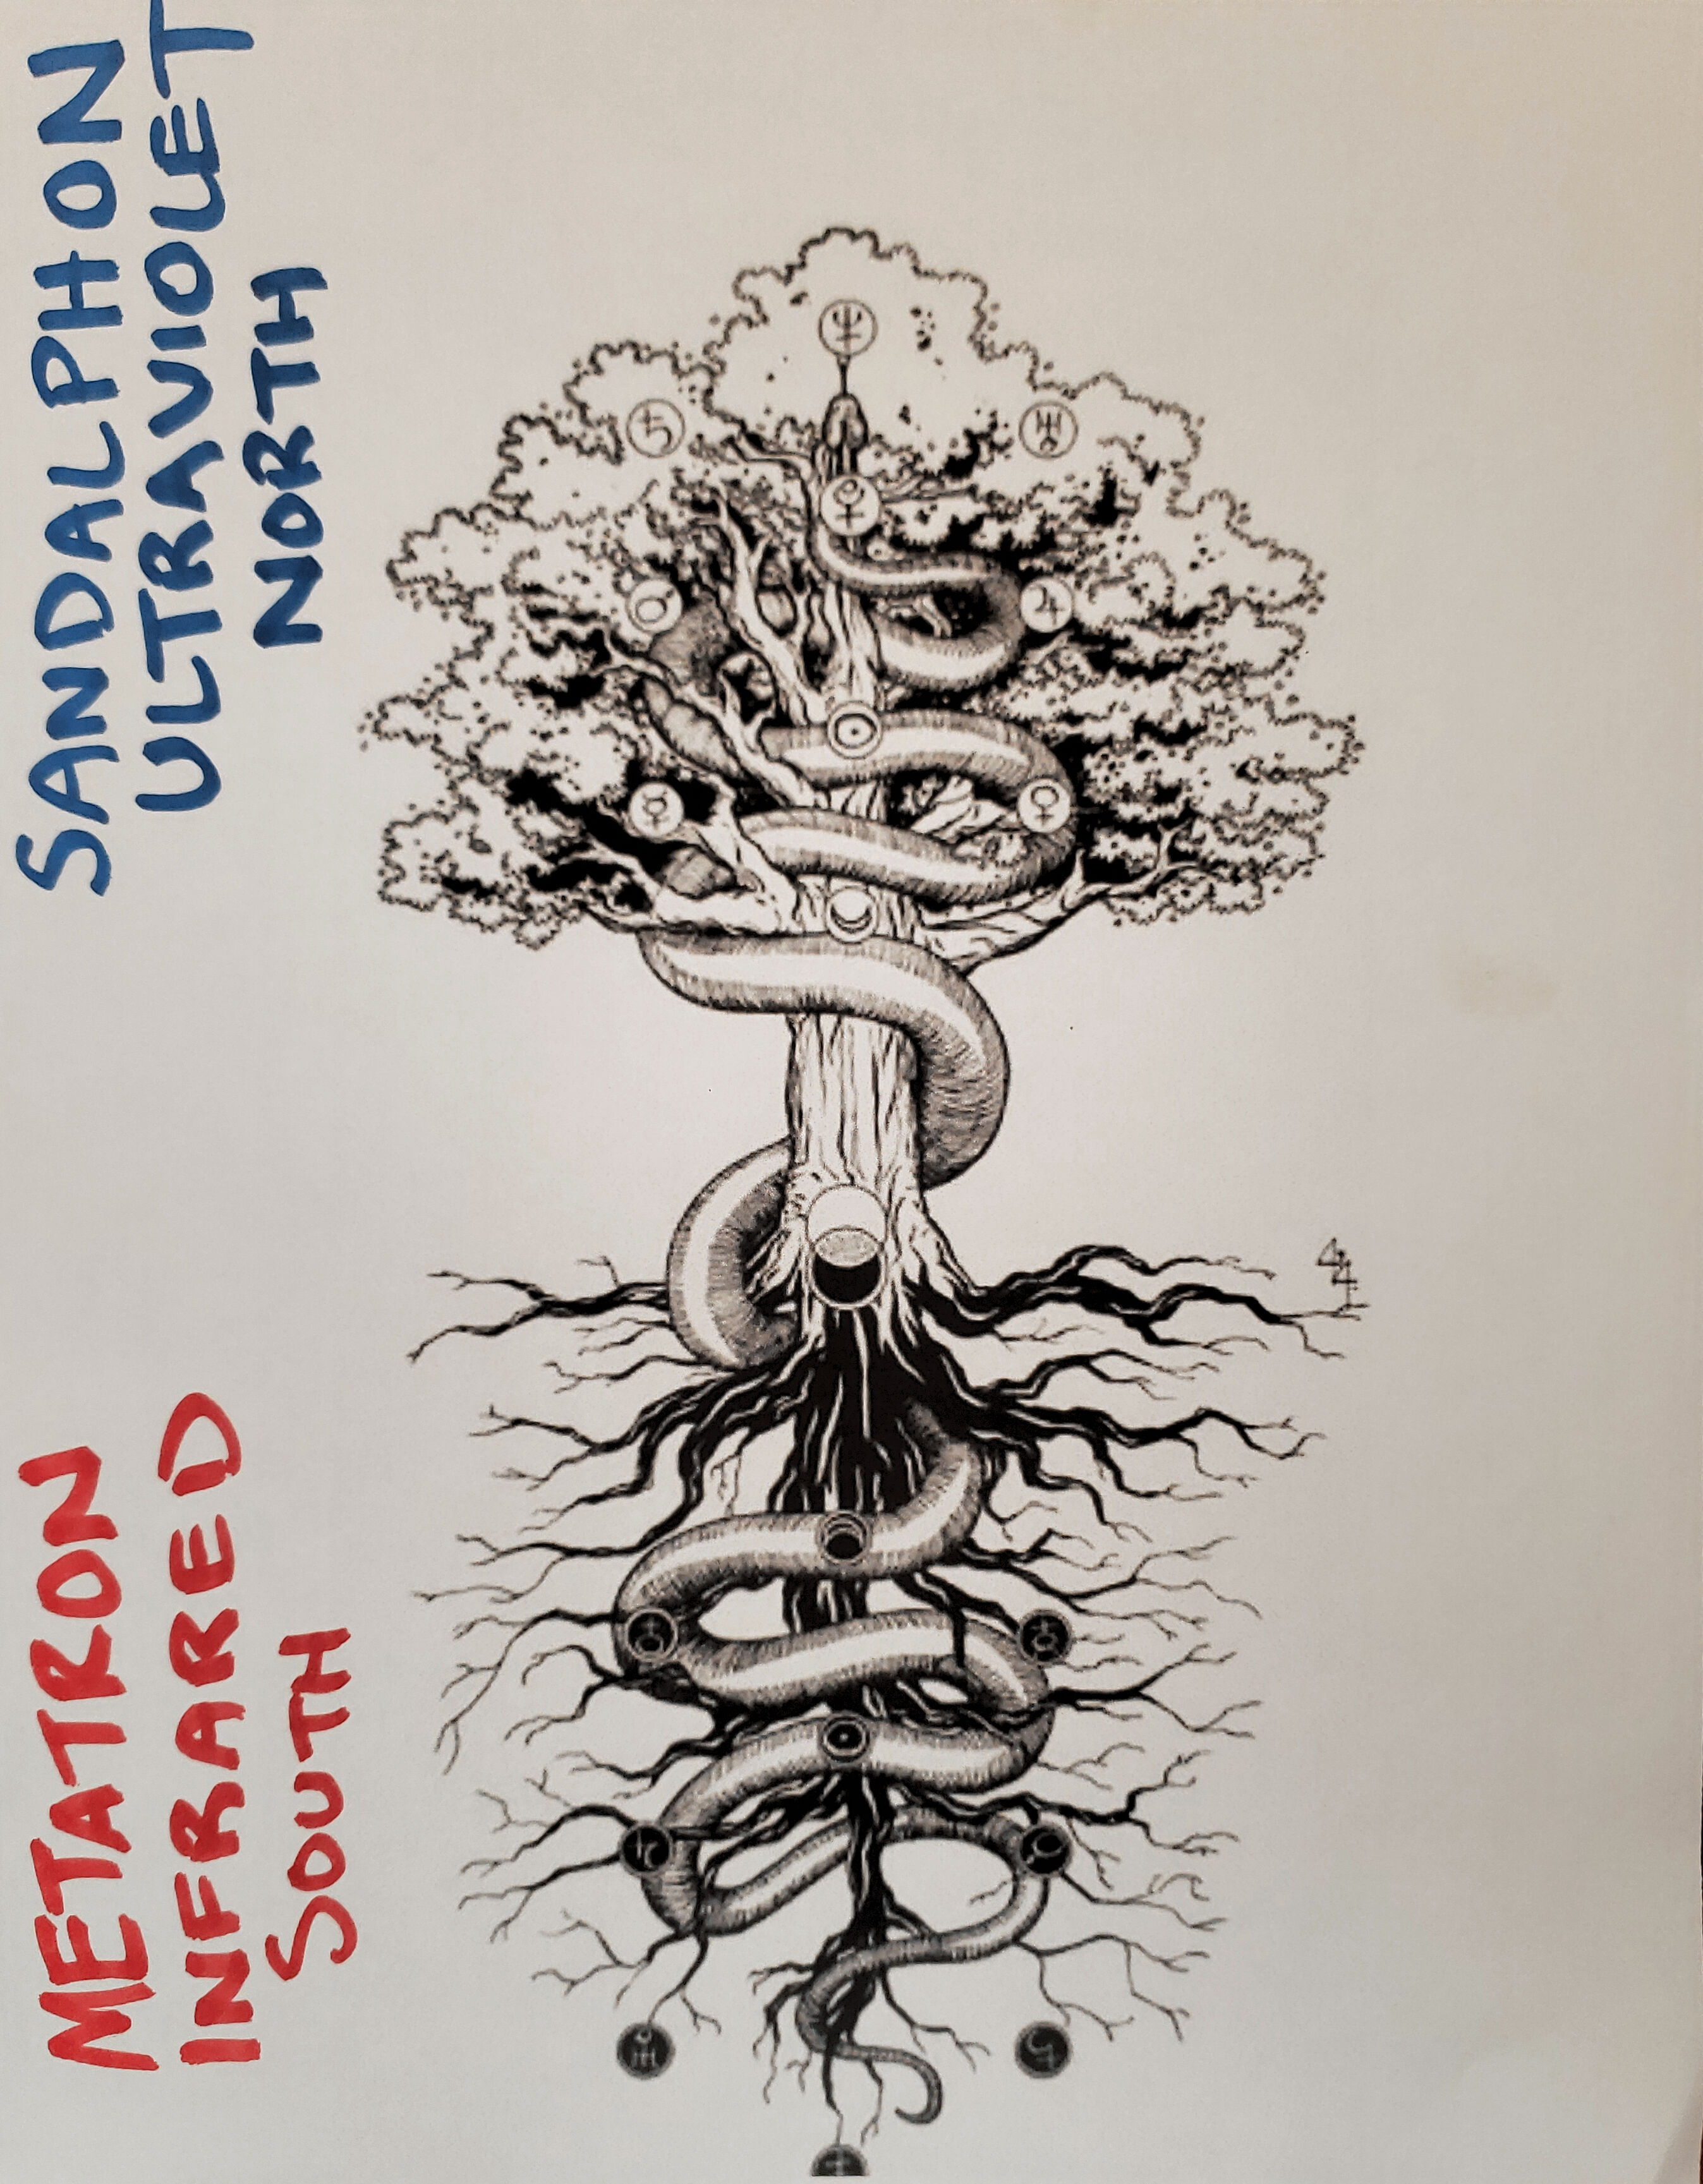 SANDALPHON
ULTRAVIOLET
NORTH
METATRON
INFRARED
SOUTH